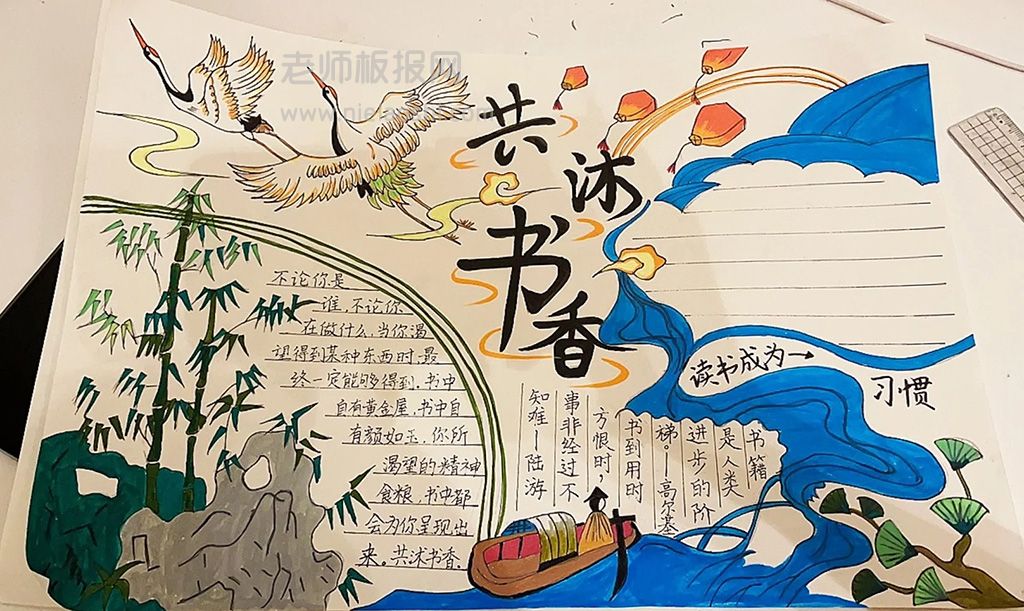 老师板报网
共沐书香
不论你是
谁，不论你
在做什么，当你渴
望得到某种东西时，最
终一定能够得到。书中
自有黄金屋，书中自
有颜如玉，你所
渴望的精神
食粮，书中都
会为你呈现出
来。共沐书香。
读书成为一
习惯
书籍
是人类
进步的阶
梯。—高尔基
书到用时
方恨时，
事非经过不
知难—陆游